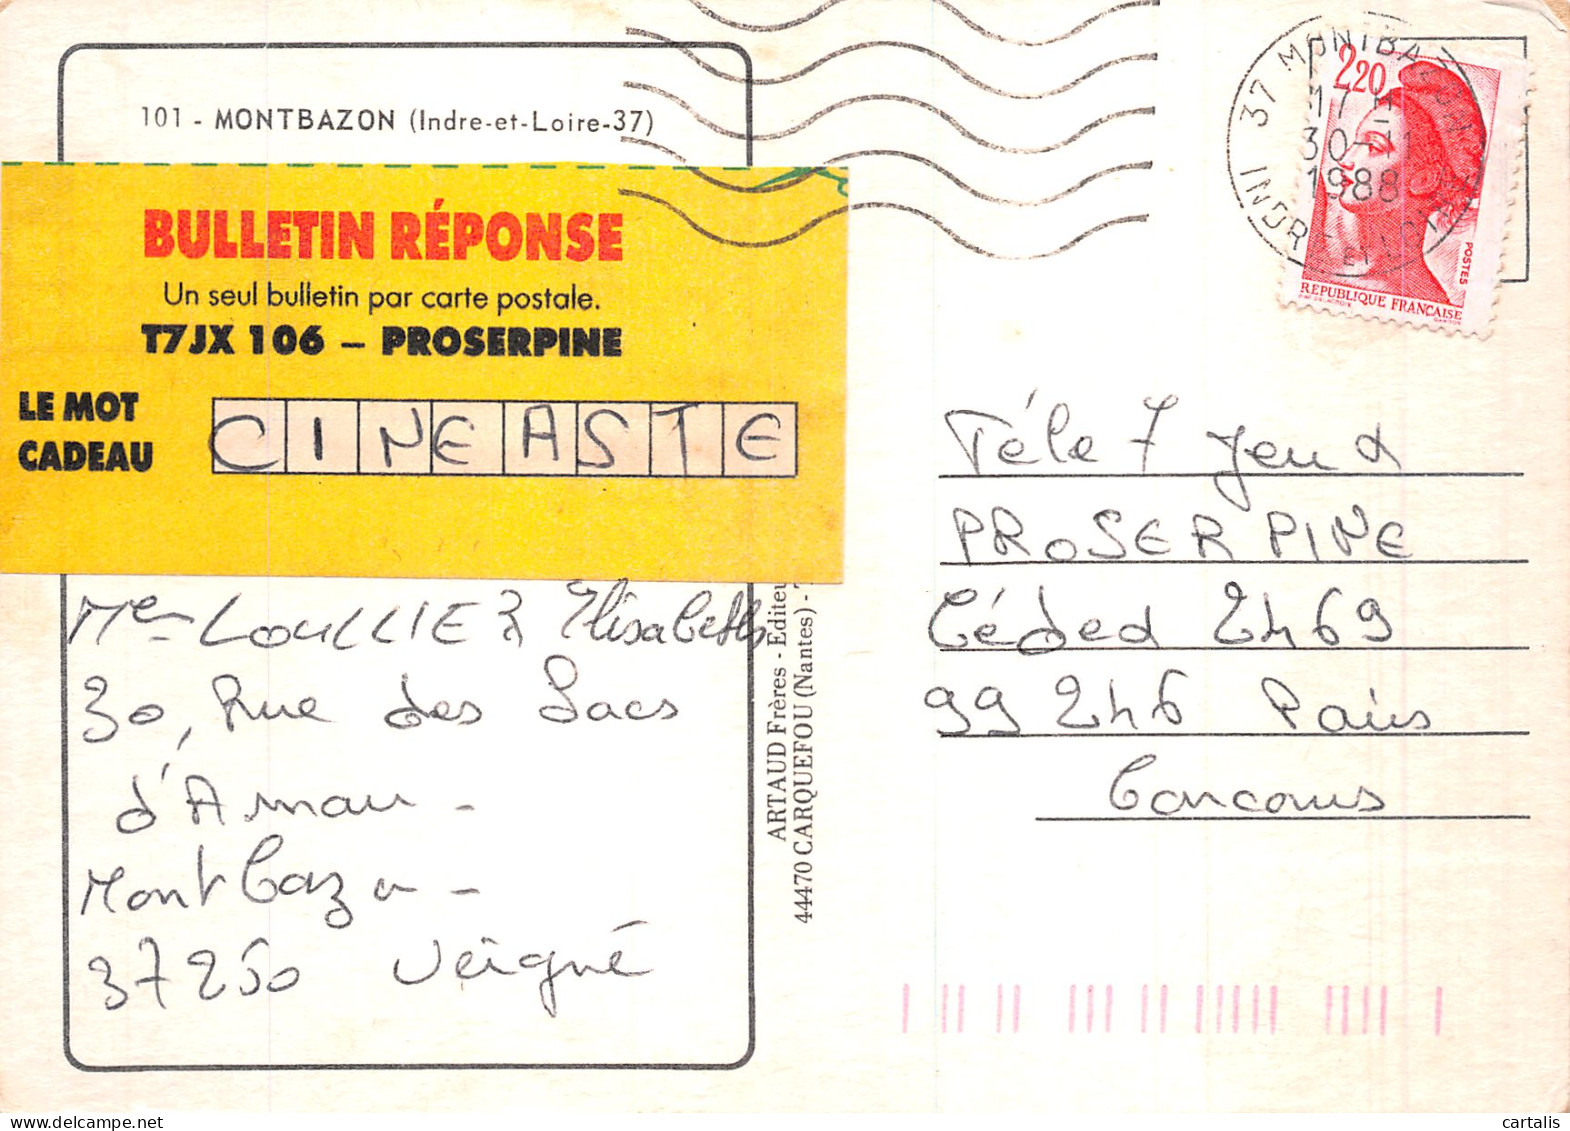 101 - MONTBAZON (Indre-et-Loire-37)
BULLETIN RÉPONSE
Un seul bulletin par carte postale.
T7JX 106 – PROSERPINE
LE MOT
CADEAU
CINEASTE
LOULLIER Elisabeth
30, Rue des Lacs
d'Amau -
Montbazon -
37250 Veigné
ARTAUD Frères - Editeu
44470 CARQUEFOU (Nantes) -
37 MONTBAZON
17 H
30-11
1988
INDRE ET LOIRE
2,20
POSTES
REPUBLIQUE FRANÇAISE
Téle 7 Jeux
PROSERPINE
Cédex 2469
99246 Paris
Concours
cartalis